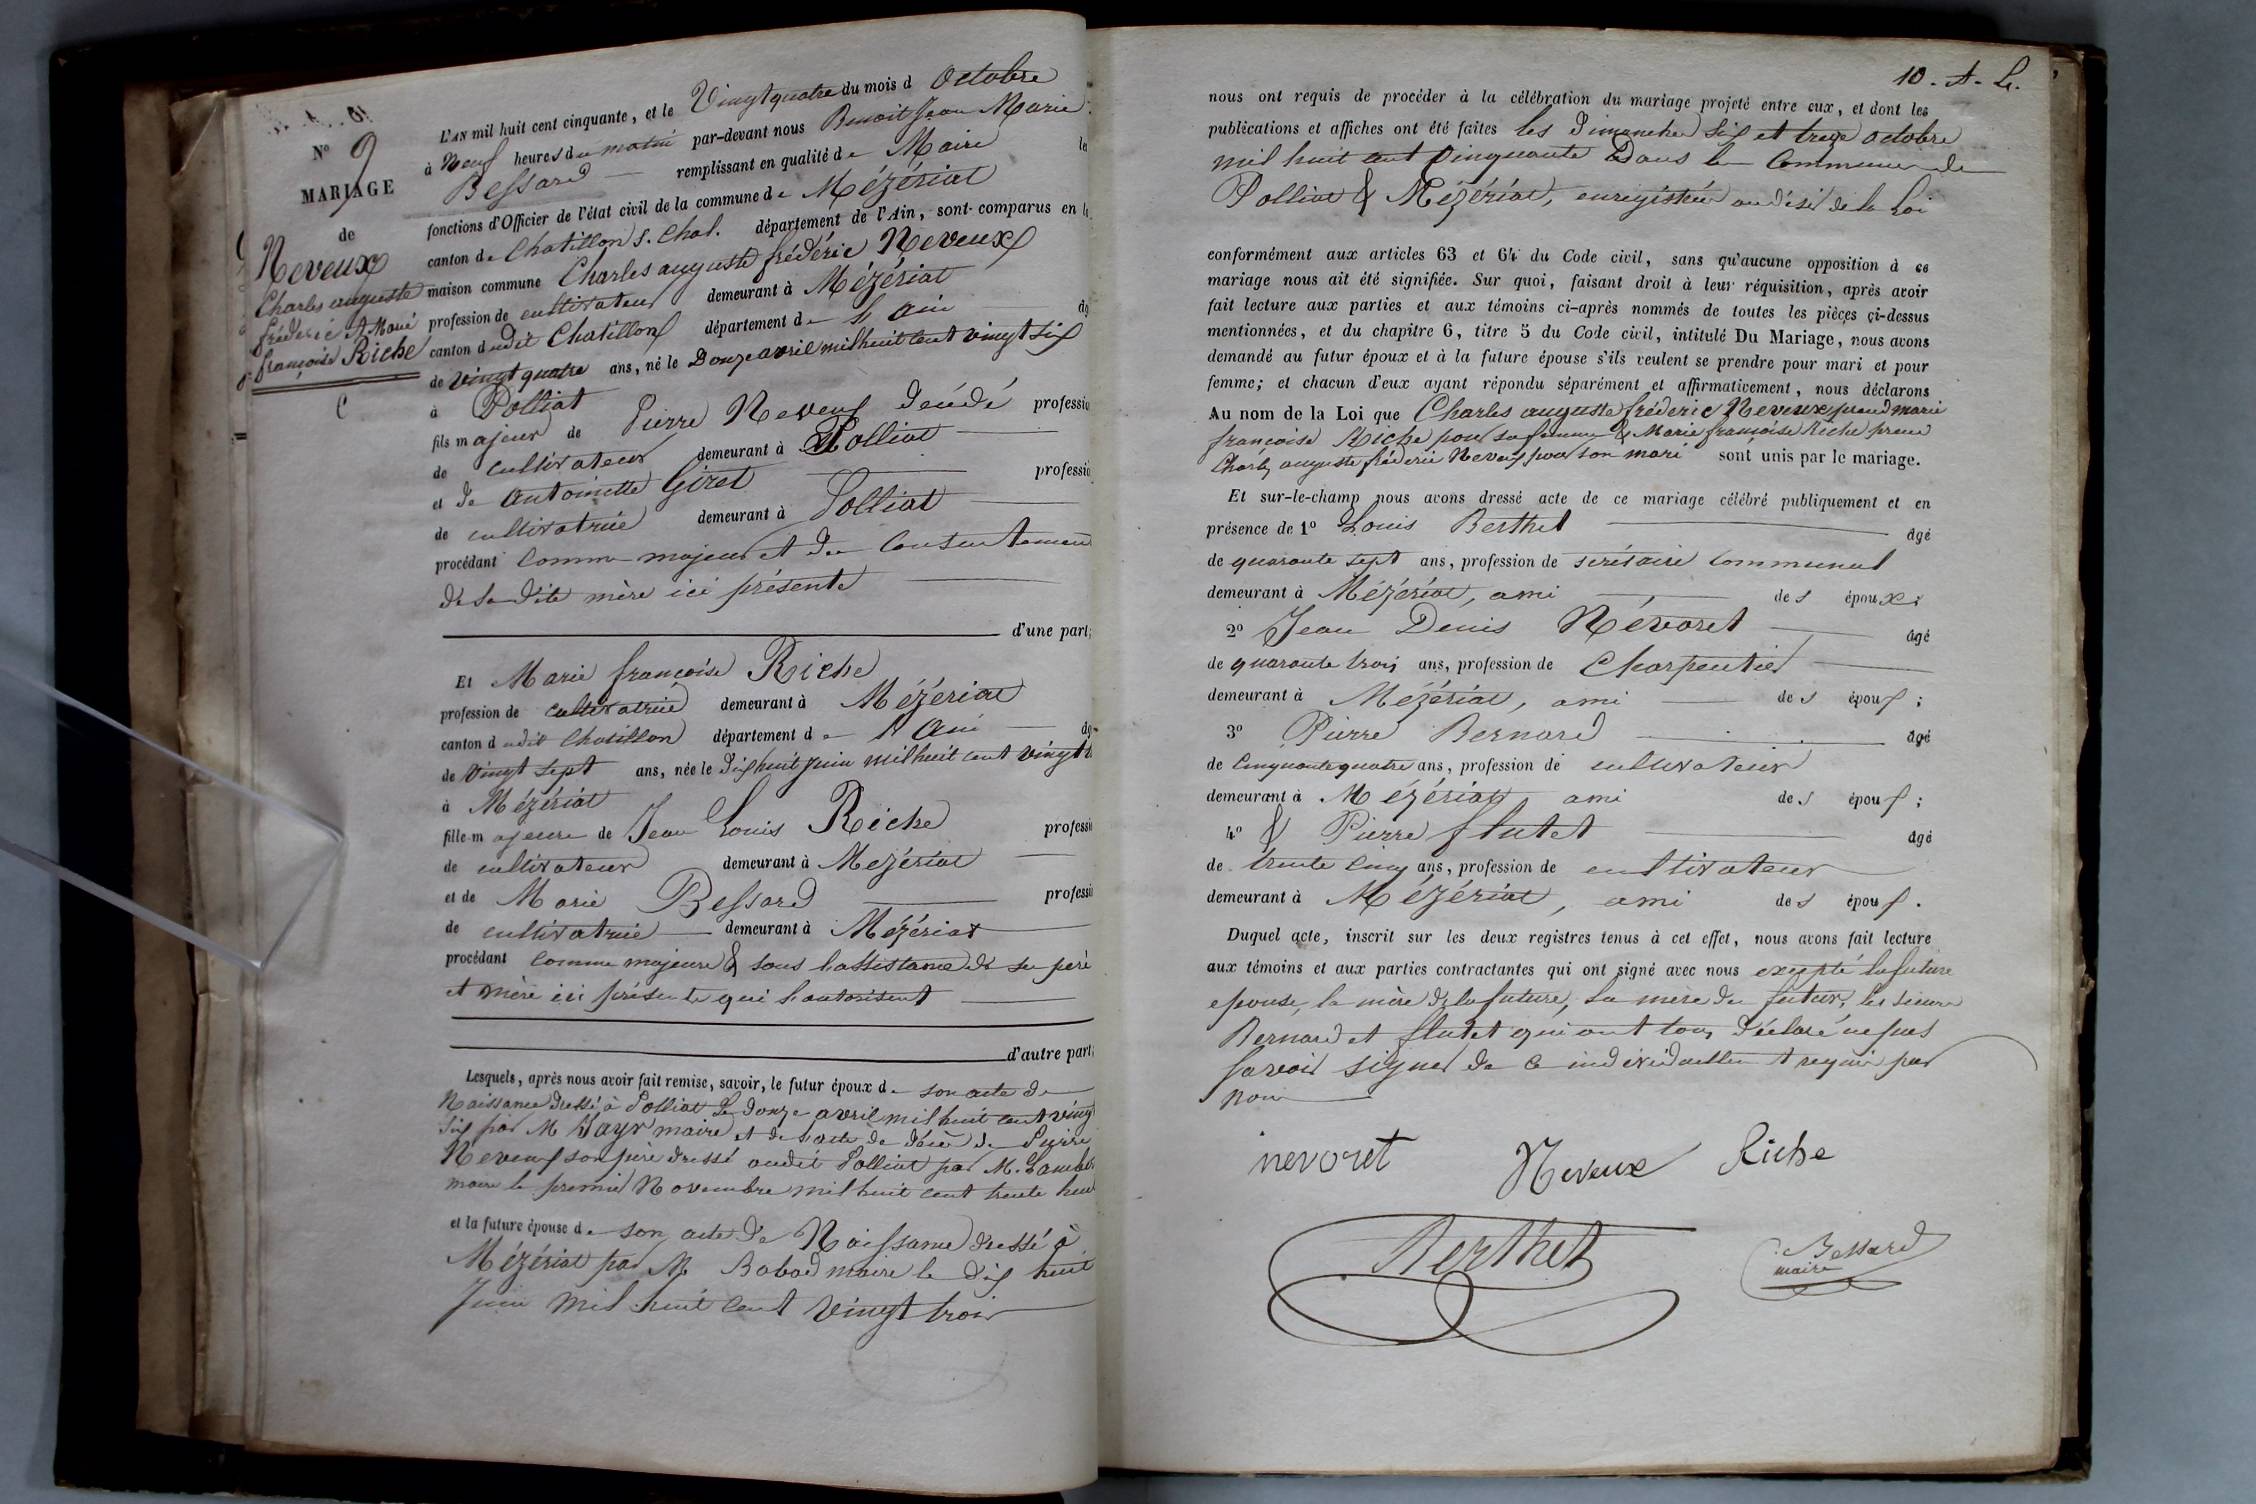 N° 9
MARIAGE
de
Neveux
Charles auguste
fréderic & Marie
françoise Riche
C
L'AN mil huit cent cinquante, et le Vingt quatre du mois d Octobre
à Neuf heures du matin par-devant nous Benoit Jean Marie
Bessard remplissant en qualité de Maire les
fonctions d'Officier de l'état civil de la commune de Mézériat
canton de Chatillon s. Chal. département de l'Ain, sont comparus en la
maison commune Charles auguste fréderic Neveux
profession de cultivateur demeurant à Mézériat
canton dudit Chatillon département de l'Ain âg
de vingt quatre ans, né le Douze avril mil huit cent vingt six
à Polliat
fils majeur de Pierre Neveux décédé professio
de cultivateur demeurant à Polliat
et de Antoinette Giret professio
de cultivatrice demeurant à Polliat
procédant comme majeur et du Consentement
de sa dite mère ici présente
d'une part;
Et Marie françoise Riche
profession de cultivatrice demeurant à Mézériat
canton dudit Chatillon département de l'Ain âg
de vingt sept ans, née le dix huit juin mil huit cent vingt
à Mézériat
fille majeure de Jean Louis Riche professi
de cultivateur demeurant à Mézériat
et de Marie Bessard professi
de cultivatrice demeurant à Mézériat
procédant comme majeure & sous l'assistance de ses père
et mère ici présents qui l'autorisent
d'autre part;
Lesquels, après nous avoir fait remise, savoir, le futur époux de son acte de
Naissance dressé à Polliat le douze avril mil huit cent vingt
six par M Jayr maire et de l'acte de décès de Pierre
Neveux son père dressé audit Polliat par M.
maire le premier Novembre mil huit cent trente
et la future épouse de son acte de Naissance dressé à
Mézériat par M Babad maire le dix huit
Juin mil huit cent vingt trois
10. A. L.
nous ont requis de procéder à la célébration du mariage projeté entre eux, et dont les
publications et affiches ont été faites les Dimanches Six et treize octobre
mil huit cent Cinquante Dans les Communes de
Polliat & Mézériat, enregistrées au désir de la Loi
conformément aux articles 63 et 64 du Code civil, sans qu'aucune opposition à ce
mariage nous ait été signifiée. Sur quoi, faisant droit à leur réquisition, après avoir
fait lecture aux parties et aux témoins ci-après nommés de toutes les pièces çi-dessus
mentionnées, et du chapitre 6, titre 5 du Code civil, intitulé Du Mariage, nous avons
demandé au futur époux et à la future épouse s'ils veulent se prendre pour mari et pour
femme; et chacun d'eux ayant répondu séparément et affirmativement, nous déclarons
Au nom de la Loi que Charles auguste fréderic Neveux prend marie
françoise Riche pour sa femme & Marie françoise Riche prend
Charles auguste fréderic Neveux pour son mari sont unis par le mariage.
Et sur-le-champ nous avons dressé acte de ce mariage célébré publiquement et en
présence de 1° Louis Berthet âgé
de quarante sept ans, profession de secrétaire communal
demeurant à Mézériat, ami des époux;
2° Jean Denis Névoret âgé
de quarante trois ans, profession de Charpentier
demeurant à Mézériat, ami des époux;
3° Pierre Bernard âgé
de Cinquante quatre ans, profession de cultivateur
demeurant à Mézériat, ami des époux;
4° & Pierre flutet âgé
de trente cinq ans, profession de cultivateur
demeurant à Mézériat, ami des époux.
Duquel acte, inscrit sur les deux registres tenus à cet effet, nous avons fait lecture
aux témoins et aux parties contractantes qui ont signé avec nous excepté la future
epouse, la mère de la future, La mère du futur, les sieurs
Bernard et flutet qui ont tous déclaré ne pas
savoir signer de ce individuellement requis par
nous
nevoret Neveux Riche
Berthet Bessard
maire